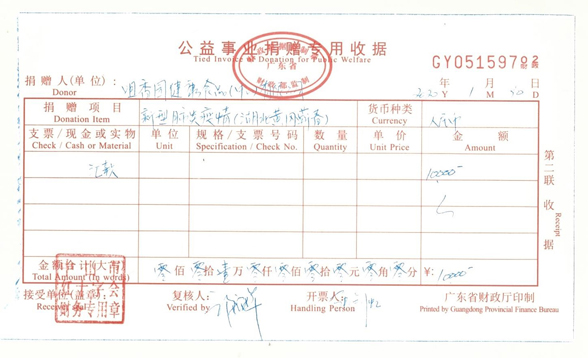 公益事业捐赠专用收据
Tied Invoice of Donation for Public Welfare
广东省
财政部监制
GY05159702
捐赠人(单位):
Donor
年 月 日
Y 1 M D
捐赠项目
Donation Item
新型肺炎疫情(湖北黄冈蕲春)
货币种类
Currency
人民币
支票/现金或实物 单位 规格/支票号码 数量 单价 金额
Check / Cash or Material Unit Specification / Check No. Quantity Unit Price Amount
汇款 10000-
金额合计(大写) 零佰零拾壹万零仟零佰零拾零元零角零分 ¥:10000-
Total Amount (In words)
接受单位(盖章): 复核人: 开票人: 广东省财政厅印制
Received by Verified by Handling Person Printed by Guangdong Provincial Finance Bureau
红十字会
财务专用章
第二联 收据
Receipt